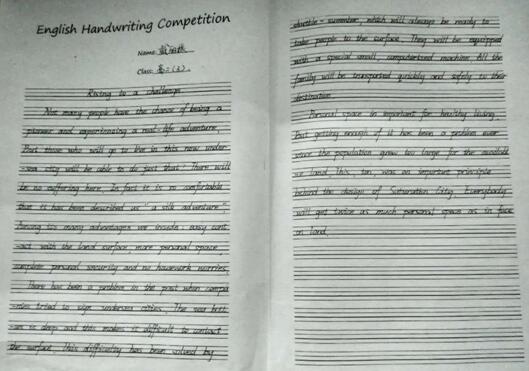 English Handwriting Competition
Name:
Class: 高二(2)
Rising to a challenge
Not many people have the chance of being a
pioneer and experiencing a real-life adventure.
But those who will go to live in this new under-
-sea city will be able to do just that. There will
be no suffering here. In fact it is so comfortable
that it has been described as "a silk adventure".
Among its many advantages are inside: easy cont-
-act with the land surface, more personal space,
complete personal security and no housework worries.
There has been a problem in the past when compa
-nies tried to sign undersea cities. The sea bott-
-om is deep and this makes it difficult to contact
the surface. This difficulty has been solved by
shuttle-summber, which will always be ready to
take people to the surface. They will be equipped
with a special small, computerized machine. All the
family will be transported quickly and safely to their
destination.
Personal space is important for healthy living.
But getting enough of it has been a problem ever
since the population grew too large for the available
land. This, too, was an important principle
behind the design of Saturation City. Everybody
will get twice as much personal space as in face
on land.